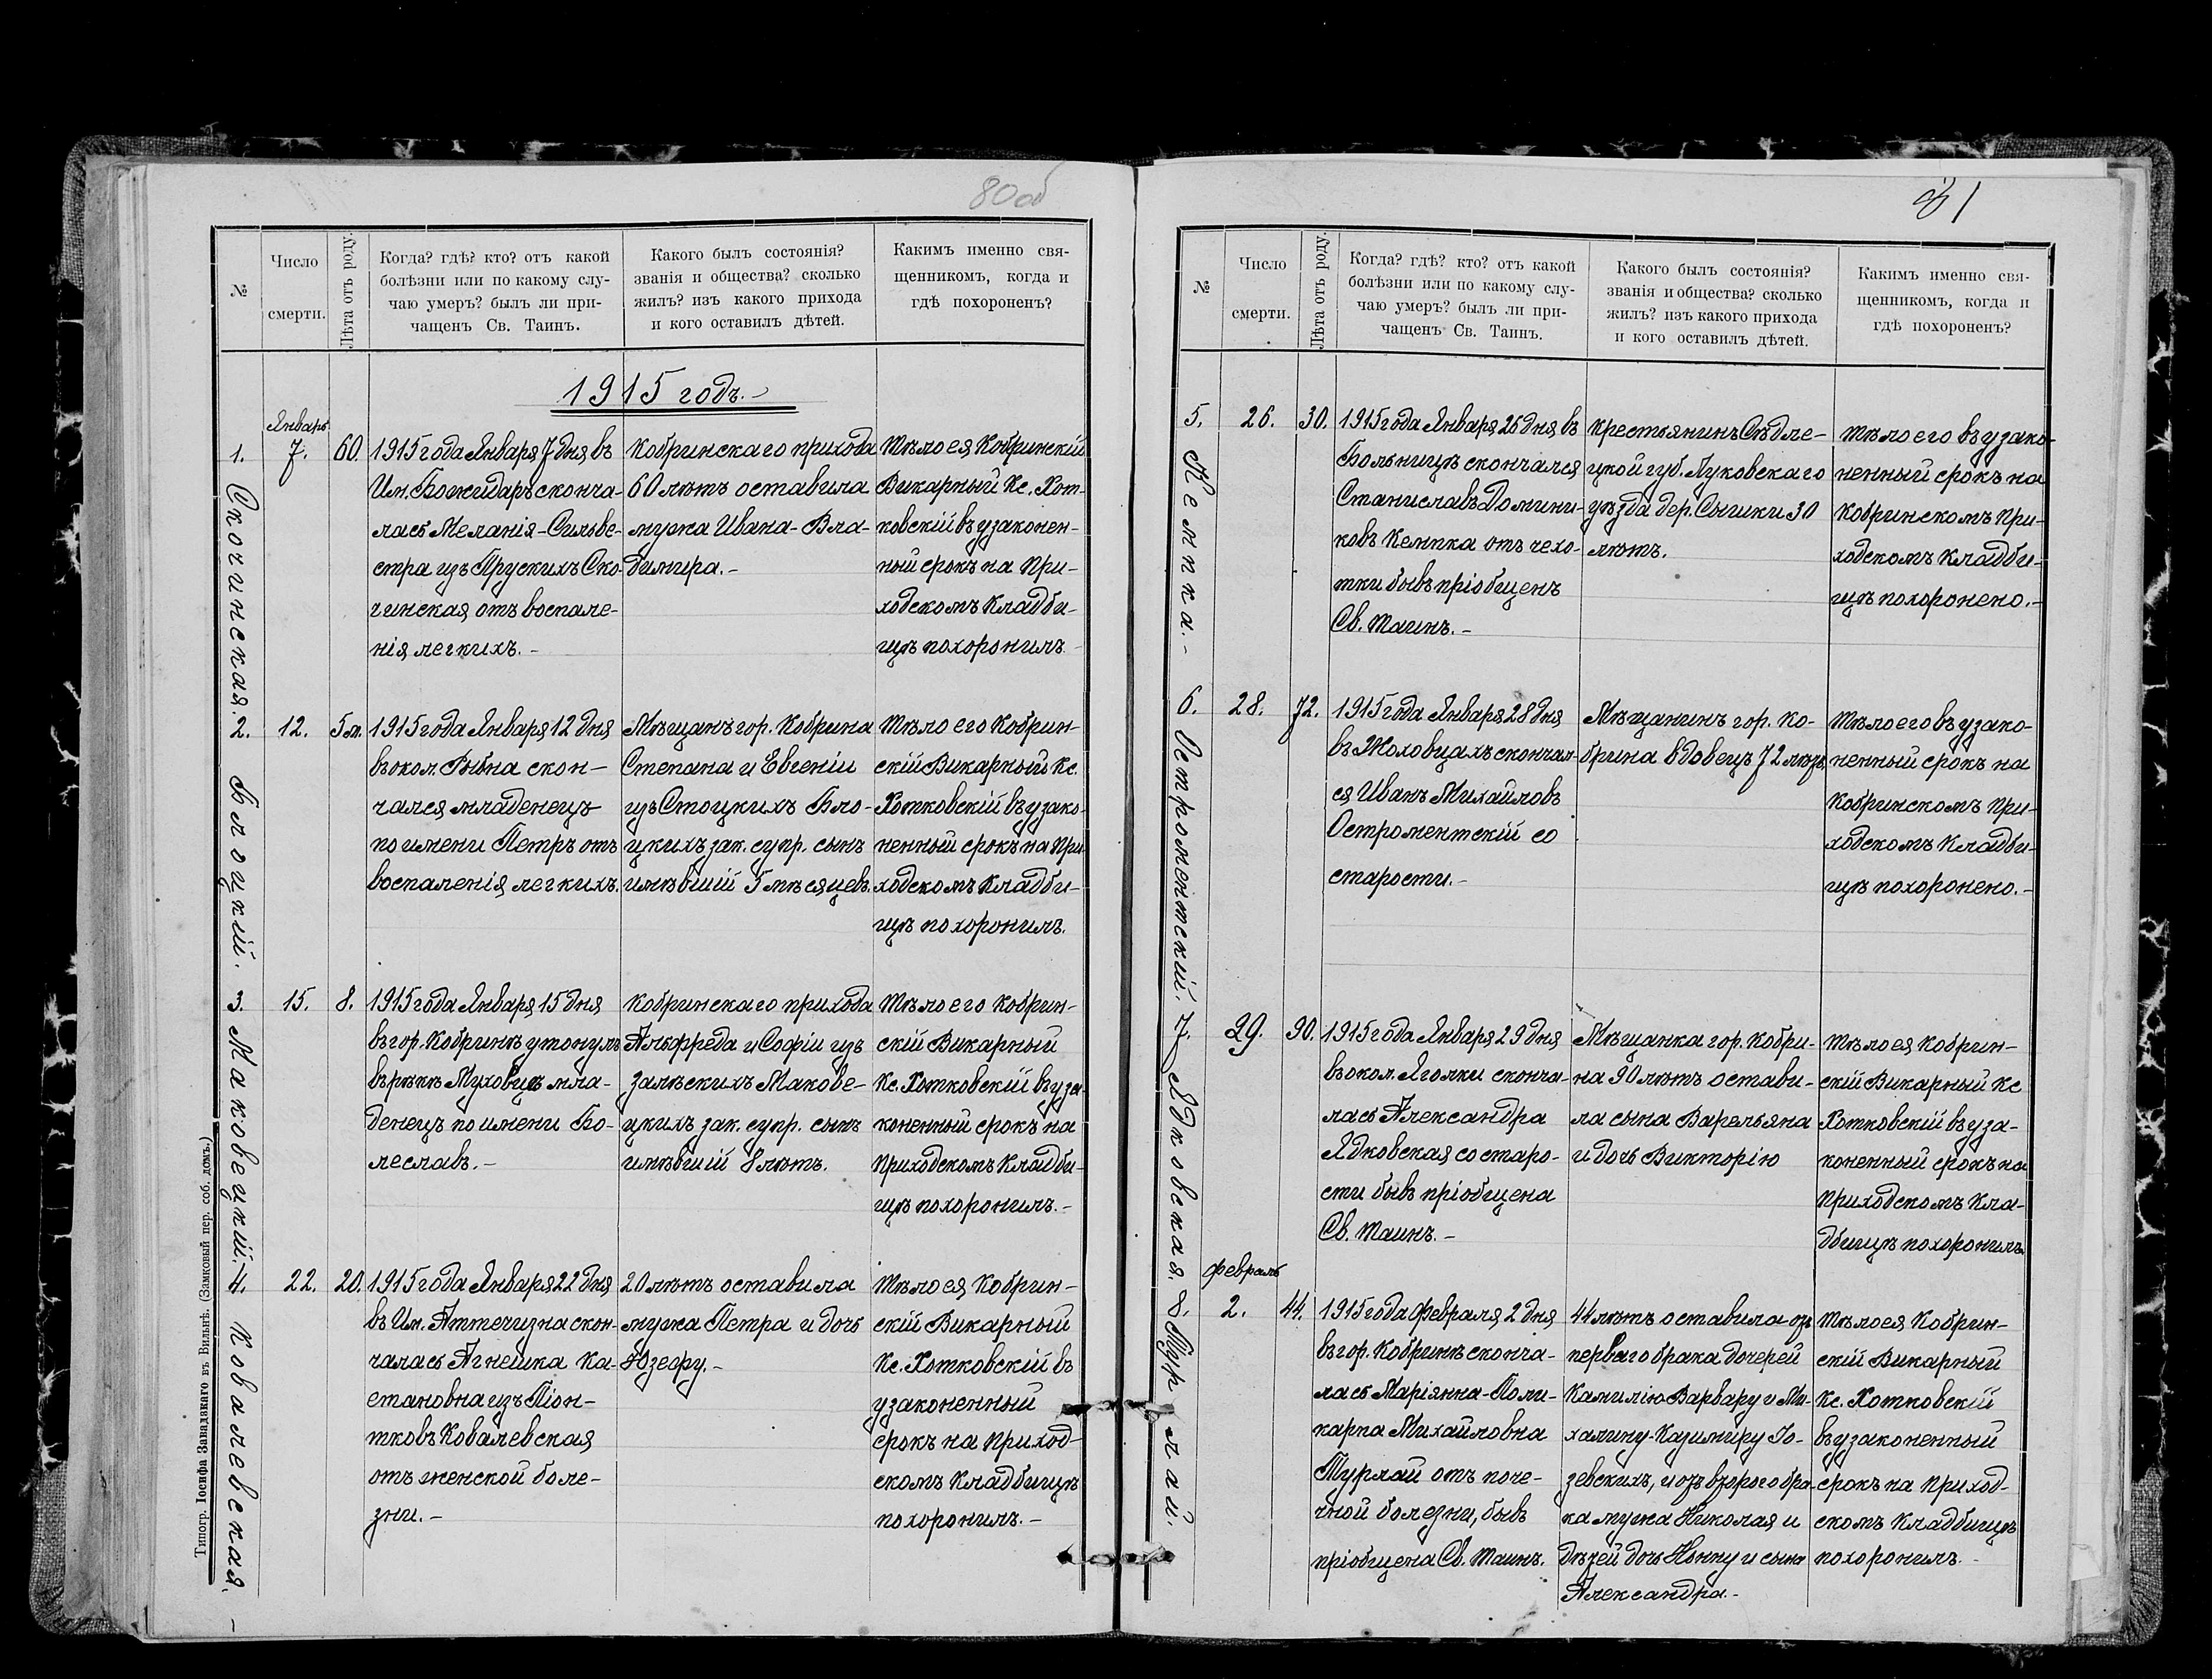 80об
№
Число
смерти.
Лѣта отъ роду.
Когда? гдѣ? кто? отъ какой
болѣзни или по какому слу-
чаю умеръ? былъ ли при-
чащенъ Св. Таинъ.
Какого былъ состоянія?
званія и общества? сколько
жилъ? изъ какого прихода
и кого оставилъ дѣтей.
Какимъ именно свя-
щенникомъ, когда и
гдѣ похороненъ?
1915 годъ.-
1.
Скочинская.
Январь
7.
60
1915 года Января 7 дня въ
Им. Божидаръ сконча-
лась Меланія-Сильве-
стра изъ Прускихъ Ско-
чинская, отъ воспале-
нія легкихъ.-
Кобринскаго прихода
60 лѣтъ оставила
мужа Ивана-Вла-
димира.-
Тѣло ея Кобринскій
Викарный Кс. Хот-
ковскій въ узаконен-
ный срокъ на При-
ходскомъ Кладби-
щѣ похоронилъ.-
2.
Блоцкій.
12.
5 м.
1915 года Января 12 дня
въ окол. Рыбна скон-
чался младенецъ
по имени Петръ отъ
воспаленія легкихъ.
Мѣщанъ гор. Кобрина
Степана и Евгеніи
изъ Стоцкихъ Бло-
цкихъ зак. супр. сынъ
имѣвшій 5 мѣсяцевъ.
Тѣло его Кобрин-
скій Викарный Кс.
Хотковскій въ узако-
ненный срокъ на При-
ходскомъ Кладби-
щѣ похоронилъ.
3.
Маковецкій.
15.
8.
1915 года Января 15 дня
въ гор. Кобринѣ утонулъ
въ рѣкѣ Муховцѣ мла-
денецъ по имени Бо-
леславъ.-
Кобринскаго прихода
Альфреда и Софіи изъ
Залѣскихъ Макове-
цкихъ зак. супр. сынъ
имѣвшій 8 лѣтъ.
Тѣло его Кобрин-
скій Викарный
Кс. Хотковскій въ уза-
коненный срокъ на
Приходскомъ Кладби-
щѣ похоронилъ.-
4.
Ковалевская.-
22.
20.
1915 года Января 22 дня
въ Им. Аттечизна скон-
чалась Агнешка Ка-
етановна изъ Піон-
тковъ Ковалевская
отъ женской боле-
зни.-
20 лѣтъ оставила
мужа Петра и дочь
Юзефу.-
Тѣло ея Кобрин-
скій Викарный
Кс. Хотковскій въ
узаконенный
срокъ на Приход-
скомъ Кладбищѣ
похоронилъ.-
Типогр. Іосифа Завадзкаго въ Вильнѣ. (Замковый пер. соб. домъ.)
81
№
Число
смерти.
Лѣта отъ роду.
Когда? гдѣ? кто? отъ какой
болѣзни или по какому слу-
чаю умеръ? былъ ли при-
чащенъ Св. Таинъ.
Какого былъ состоянія?
званія и общества? сколько
жилъ? изъ какого прихода
и кого оставилъ дѣтей.
Какимъ именно свя-
щенникомъ, когда и
гдѣ похороненъ?
5.
Кемпка.-
26.
30.
1915 года Января 26 дня въ
Больницѣ скончался
Станиславъ Домини-
ковъ Кемпка отъ чехо-
тки бывъ пріобщенъ
Св. Таинъ.-
Крестьянинъ Сѣдле-
цкой губ. Луковскаго
уѣзда дер. Сышки 30
лѣтъ.
Тѣло его въ узако-
ненный срокъ на
Кобринскомъ При-
ходскомъ Кладби-
щѣ похоронено.-
6.
Остроментскій.
28.
72.
1915 года Января 28 дня
въ Жоховцахъ скончал-
ся Иванъ Михайловъ
Остроментскій со
старости.-
Мѣщанинъ гор. Ко-
брина вдовецъ 72 лѣтъ
Тѣло его въ узако-
ненный срокъ на
Кобринскомъ При-
ходскомъ Кладби-
щѣ похоронено.-
7.
Ядковская.
29.
90.
1915 года Января 29 дня
въ окол. Яголки сконча-
лась Александра
Ядковская со старо-
сти бывъ пріобщена
Св. Таинъ.-
Мѣщанка гор. Кобри-
на 90 лѣтъ остави-
ла сына Варельяна
и дочь Викторію
Тѣло ея Кобрин-
скій Викарный Кс
Хотковскій въ уза-
коненный срокъ на
Приходскомъ Кла-
дбищѣ похоронилъ
8.
Турлай.
февраль
2.
44.
1915 года Февраля 2 дня
въ гор. Кобринѣ сконча-
лась Маріянна-Поли-
карпа Михайловна
Турлай отъ поче-
чной болезни, бывъ
пріобщена Св. Таинъ.
44 лѣтъ оставила отъ
перваго брака дочерей
Камилію-Варвару и Ми-
халину-Казимиру Ю-
зевскихъ, и отъ второго бра-
ка мужа Николая и
дѣтей дочь Нонну и сына
Александра.-
Тѣло ея Кобрин-
скій Викарный
Кс. Хотковскій
въ узаконенный
срокъ на Приход-
скомъ Кладбищѣ
похоронилъ.-